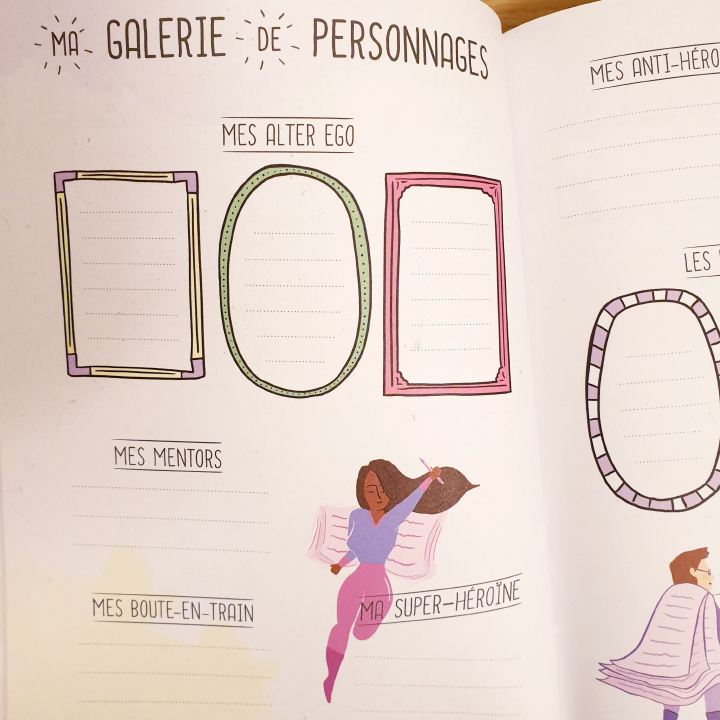 MA GALERIE DE PERSONNAGES
MES ALTER EGO
MES MENTORS
MES BOUTE-EN-TRAIN
MA SUPER-HÉROÏNE
MES ANTI-HÉRO
LES